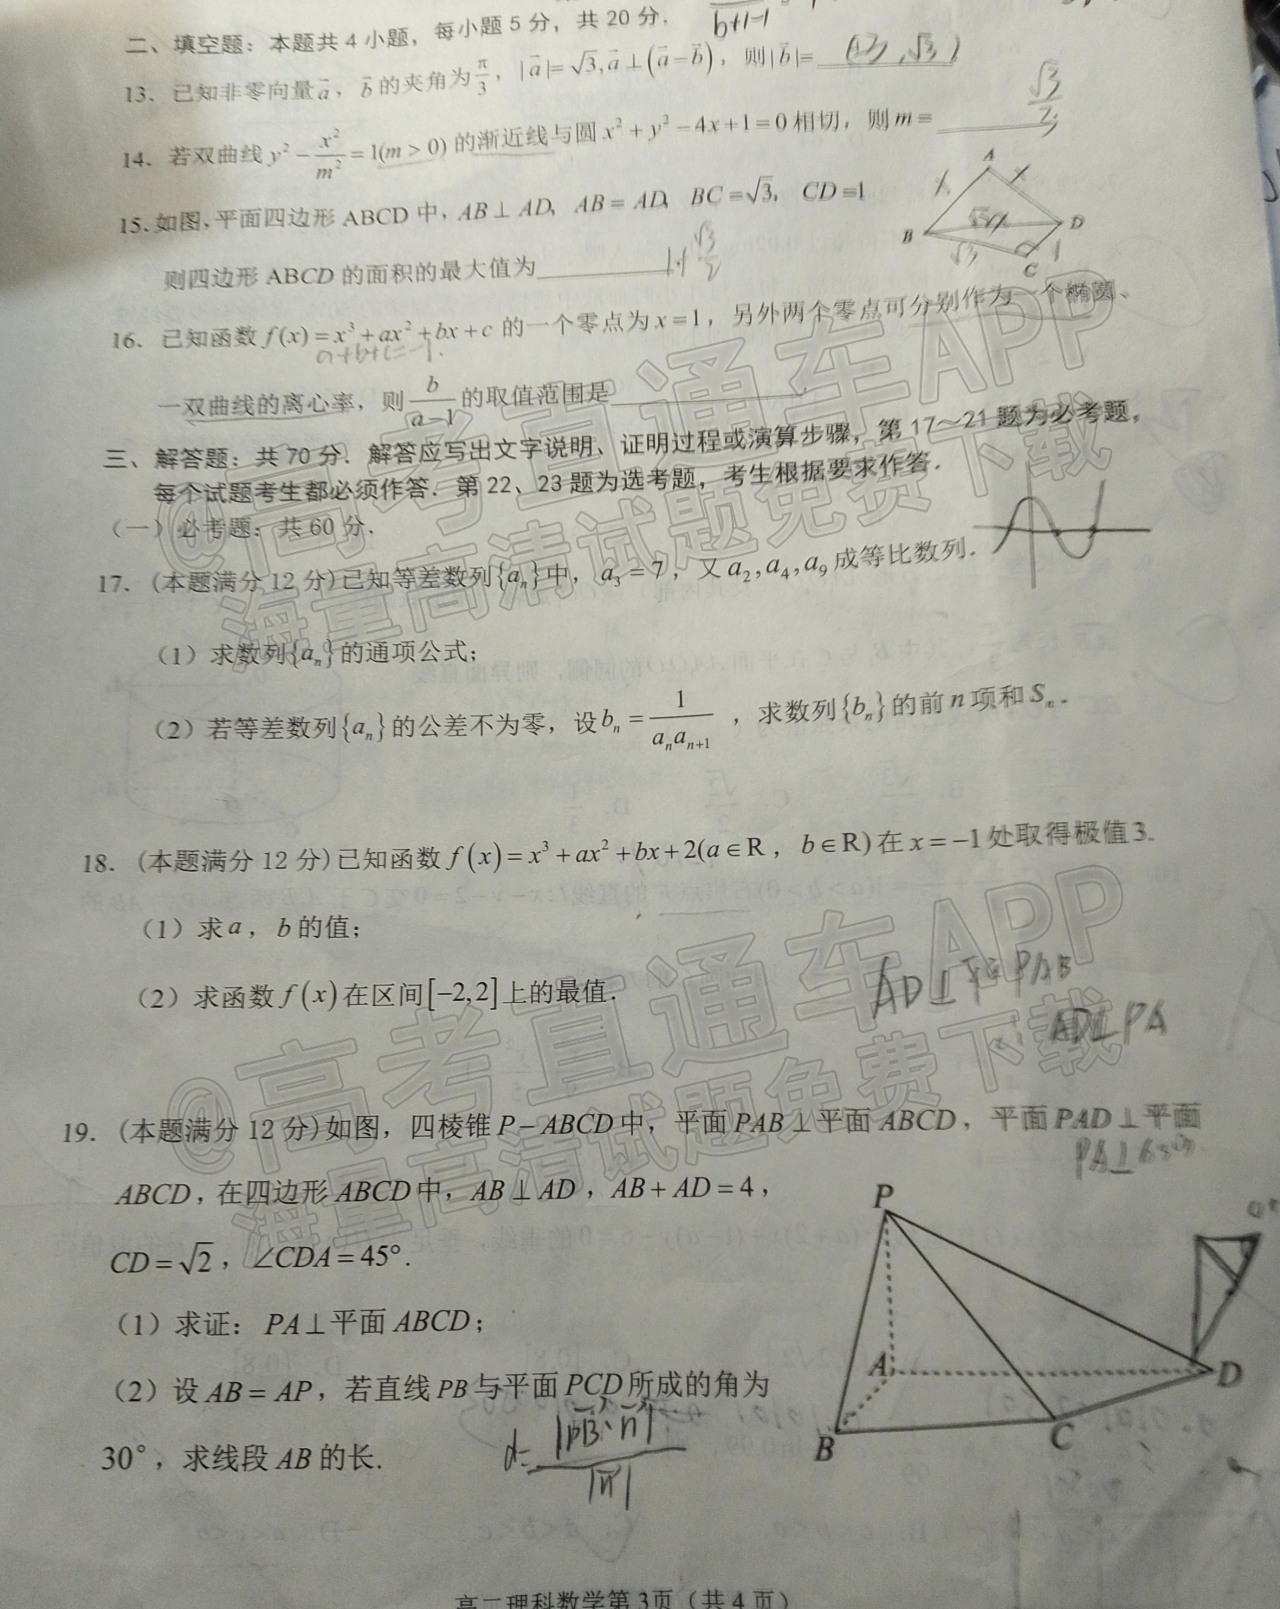 二、填空题：本题共 4 小题，每小题 5 分，共 20 分．
b+1-1
13．已知非零向量a⃗，b⃗的夹角为π/3，|a⃗|=√3,a⃗⊥(a⃗−b⃗)，则|b⃗|=______
√3/2
14．若双曲线y²−x²/m²=1(m＞0)的渐近线与圆x²+y²−4x+1=0相切，则m=______
15.如图,平面四边形 ABCD 中, AB⊥AD, AB=AD, BC=√3, CD=1
A
B
D
C
√3
1
则四边形 ABCD 的面积的最大值为______
1+√3/2
16．已知函数f(x)=x³+ax²+bx+c的一个零点为x=1，另外两个零点可分别作为一个椭圆、
a+b+c=-1.
一双曲线的离心率，则b/(a−1)的取值范围是______
三、解答题：共 70 分．解答应写出文字说明、证明过程或演算步骤，第 17～21 题为必考题，
每个试题考生都必须作答．第 22、23 题为选考题，考生根据要求作答．
（一）必考题：共 60 分．
17．(本题满分 12 分)已知等差数列{aₙ}中，a₃=7，又a₂,a₄,a₉成等比数列．
（1）求数列{aₙ}的通项公式；
（2）若等差数列{aₙ}的公差不为零，设bₙ=1/(aₙaₙ₊₁)，求数列{bₙ}的前n项和Sₙ．
18．(本题满分 12 分)已知函数f(x)=x³+ax²+bx+2(a∈R，b∈R)在x=−1处取得极值3.
（1）求a，b的值；
（2）求函数f(x)在区间[−2,2]上的最值．
AD⊥平面PAB
AD⊥PA
19．(本题满分 12 分)如图，四棱锥P−ABCD中，平面PAB⊥平面ABCD，平面PAD⊥平面
ABCD，在四边形ABCD中，AB⊥AD，AB+AD=4，
CD=√2，∠CDA=45°.
（1）求证：PA⊥平面ABCD；
（2）设AB=AP，若直线PB与平面PCD所成的角为
30°，求线段AB的长.
d=|PB⃗·n⃗|/|n⃗|
P
A
D
B
C
高二理科数学第3页（共 4 页）
@高考直通车APP
海量高清试题免费下载
@高考直通车APP
海量高清试题免费下载